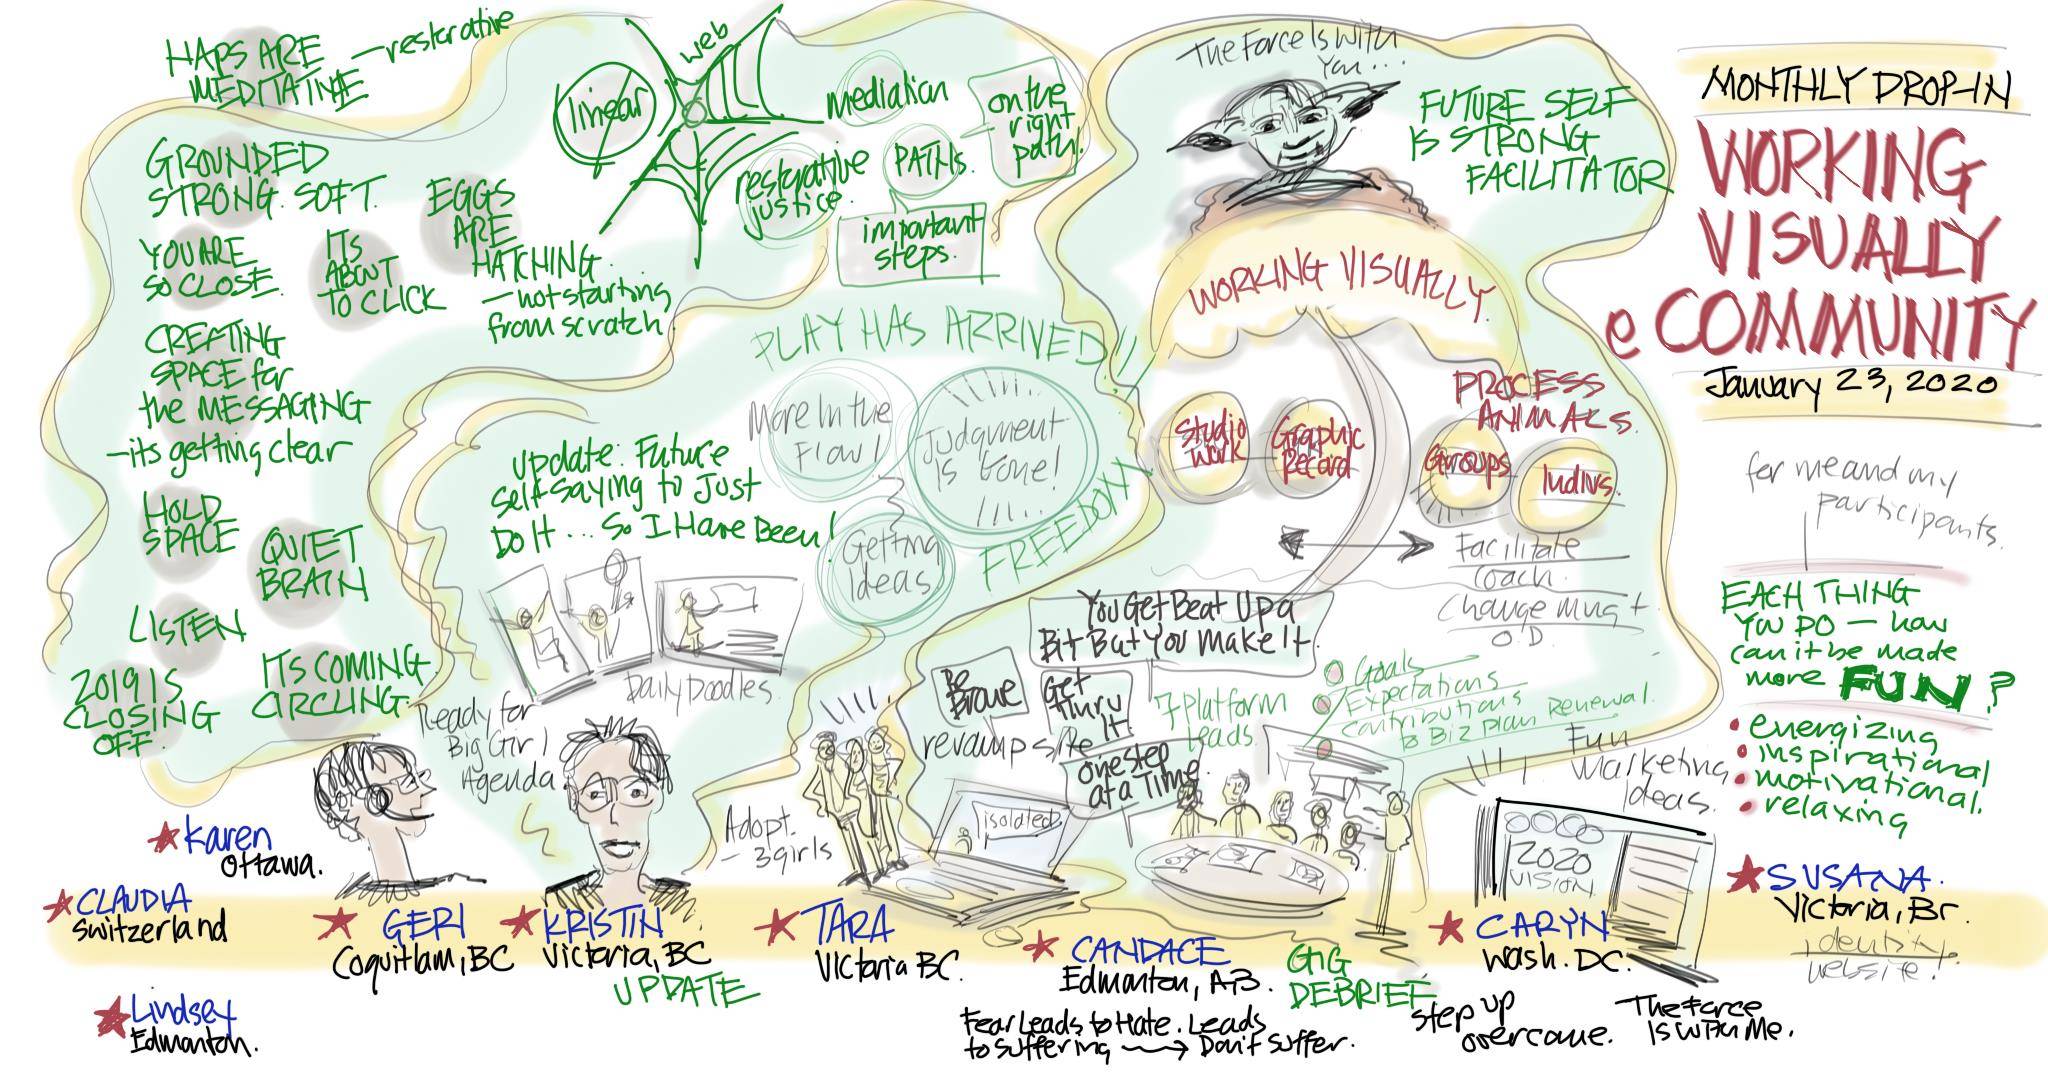 MONTHLY DROP-IN
WORKING
VISUALLY
e COMMUNITY
January 23, 2020
MAPS ARE
MEDITATIVE
—restorative
GROUNDED
STRONG. SOFT.
YOU ARE
SO CLOSE.
ITS
ABOUT
TO CLICK
EGGS
ARE
HATCHING.
—not starting
from scratch.
CREATING
SPACE for
the MESSAGING
—its getting clear
HOLD
SPACE
QUIET
BRAIN
LISTEN
2019 IS
CLOSING
OFF.
ITS COMING.
CIRCLING.
linear
web
mediation
restorative
justice.
PATHS.
on the
right
path!
important
steps.
PLAY HAS ARRIVED!!
More In the
Flow!
Judgment
Is Gone!
Getting
Ideas
FREEDOM
Update: Future
self saying to Just
Do It ... So I Have Been!
Daily Doodles.
Ready for
Big Girl
Agenda.
The Force Is With
You...
FUTURE SELF
IS STRONG
FACILITATOR
WORKING VISUALLY.
Studio
Work
Graphic
Record
PROCESS
ANIMALS.
Groups
Indivs.
Facilitate
Coach.
Change Mngt
O.D.
for me and my
participants.
EACH THING
YOU DO — how
can it be made
more FUN?
energizing
inspirational
motivational.
relaxing
You Get Beat Up a
Bit But You Make It.
Be
Brave
Get
thru
It
revamp site
one step
at a Time.
7 Platform
Leads.
Goals
Expectations
Contributions
Biz Plan Renewal.
Fun
Marketing
Ideas.
Adopt.
— 3 girls
isolated
2020
VISION
Karen
Ottawa.
CLAUDIA
Switzerland
Lindsey
Edmonton.
GERI
Coquitlam, BC
KRISTIN
Victoria, BC
UPDATE
TARA
Victoria BC.
CANDACE
Edmonton, AB.
GIG
DEBRIEF
Fear Leads to Hate. Leads
to Suffering → Don't Suffer.
CARYN
Wash. DC.
Step up
overcome.
The Force
Is with Me.
SUSANA.
Victoria, BC.
identity
website!